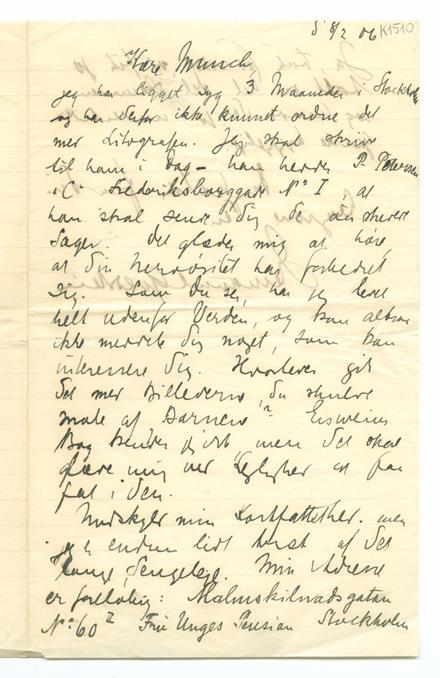 S 8/2 06 K1510
Kære Munch
jeg har ligget syg 3 Maaneder i Stockholm
og har derfor ikke kunnet ordne det
med Litografen. Jeg skal skrive
til ham i Dag – han hedder P. Petersen
"C" Frederiksborggade No I at
han skal sende Dig de ønskede
Sager. Det glæder mig at høre
at din Nervøsitet har forbedret
sig. Som Du ser, har jeg levet
helt udenfor Verden, og kan altsaa
ikke meddele Dig noget, som kan
interessere Dig. Hvorledes gik
det med Billederne, du skulde
male af Børnene?
Bog kender jeg ikke men det skal
være mig en at faa
fat i den.
Undskyld min Kortfattethed. men
jeg er endnu lidt af det
lange Sengeleje. Min Adresse
er foreløbig: Malmskilnadsgatan
No 60 II Fru Unges Pension Stockholm